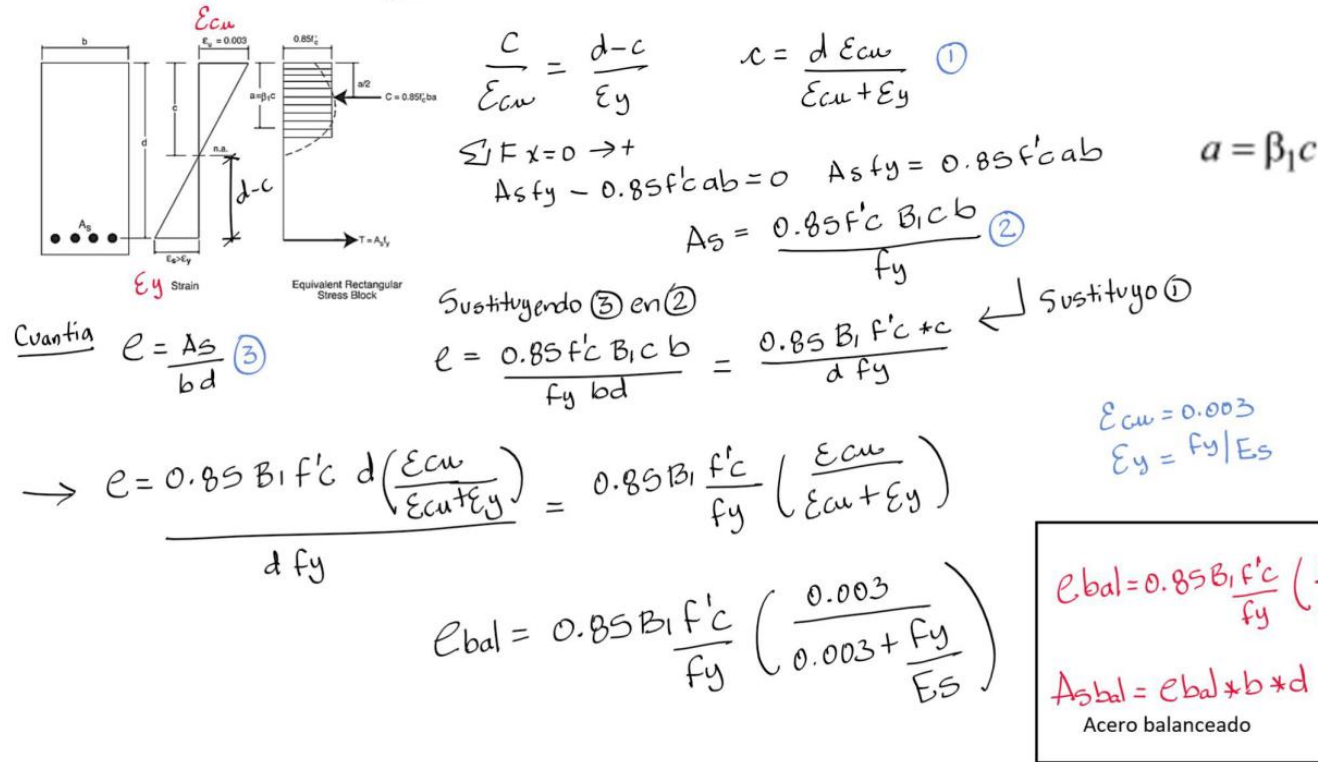 Ecu
b
εᵤ = 0.003
0.85f'c
c
d
a=β₁c
a/2
C = 0.85f'cba
n.a.
d-c
As
εs>εy
T = Asfy
Ey
Strain
Equivalent Rectangular
Stress Block
C/Ecu = (d-c)/Ey    c = d Ecu/(Ecu + Ey) ①
ΣFx=0 →+
Asfy - 0.85f'cab=0   Asfy = 0.85f'cab
a = β₁c
As = 0.85f'c B₁cb/fy ②
Sustituyendo ③ en ②
Sustituyo ①
Cuantia   e = As/bd ③
e = 0.85f'c B₁cb/(fy bd) = 0.85 B₁ f'c *c/(d fy)
Ecu = 0.003
Ey = fy/Es
→ e = 0.85 B₁ f'c d(Ecu/(Ecu+Ey))/(d fy) = 0.85B₁ f'c/fy (Ecu/(Ecu + Ey))
ebal = 0.85B₁ f'c/fy (0.003/(0.003 + fy/Es))
ebal = 0.85B₁ f'c/fy (
Asbal = ebal*b*d
Acero balanceado